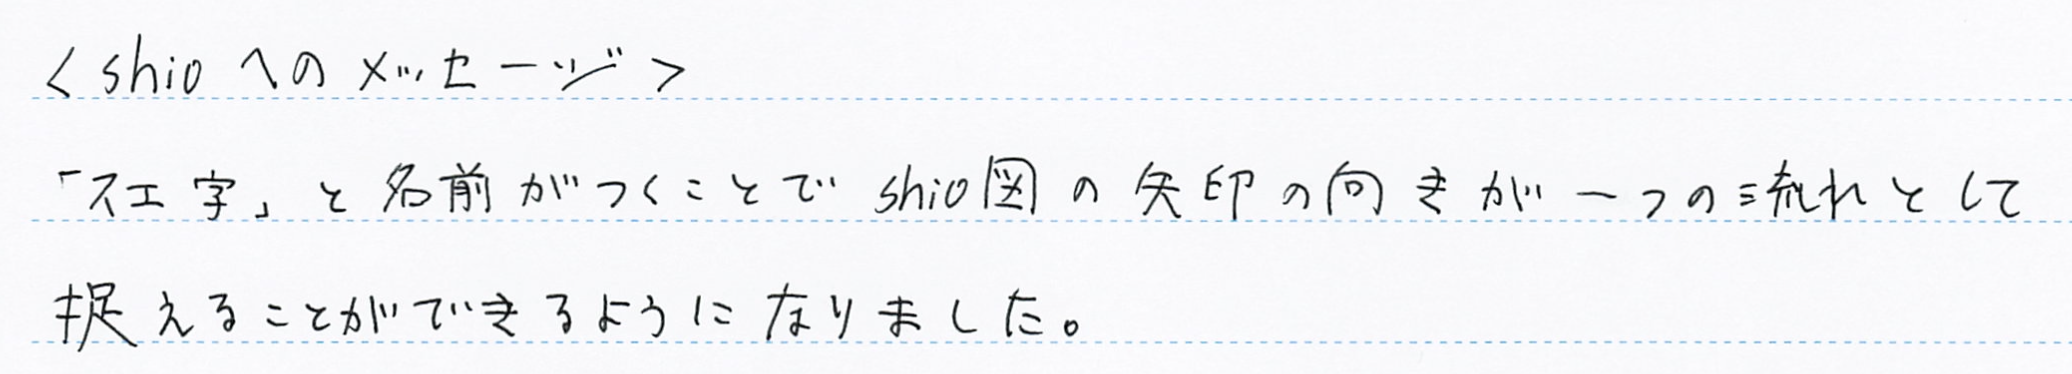 <shioへのメッセージ>
「スエ字」と名前がつくことでshio図の矢印の向きが一つの流れとして
捉えることができるようになりました。